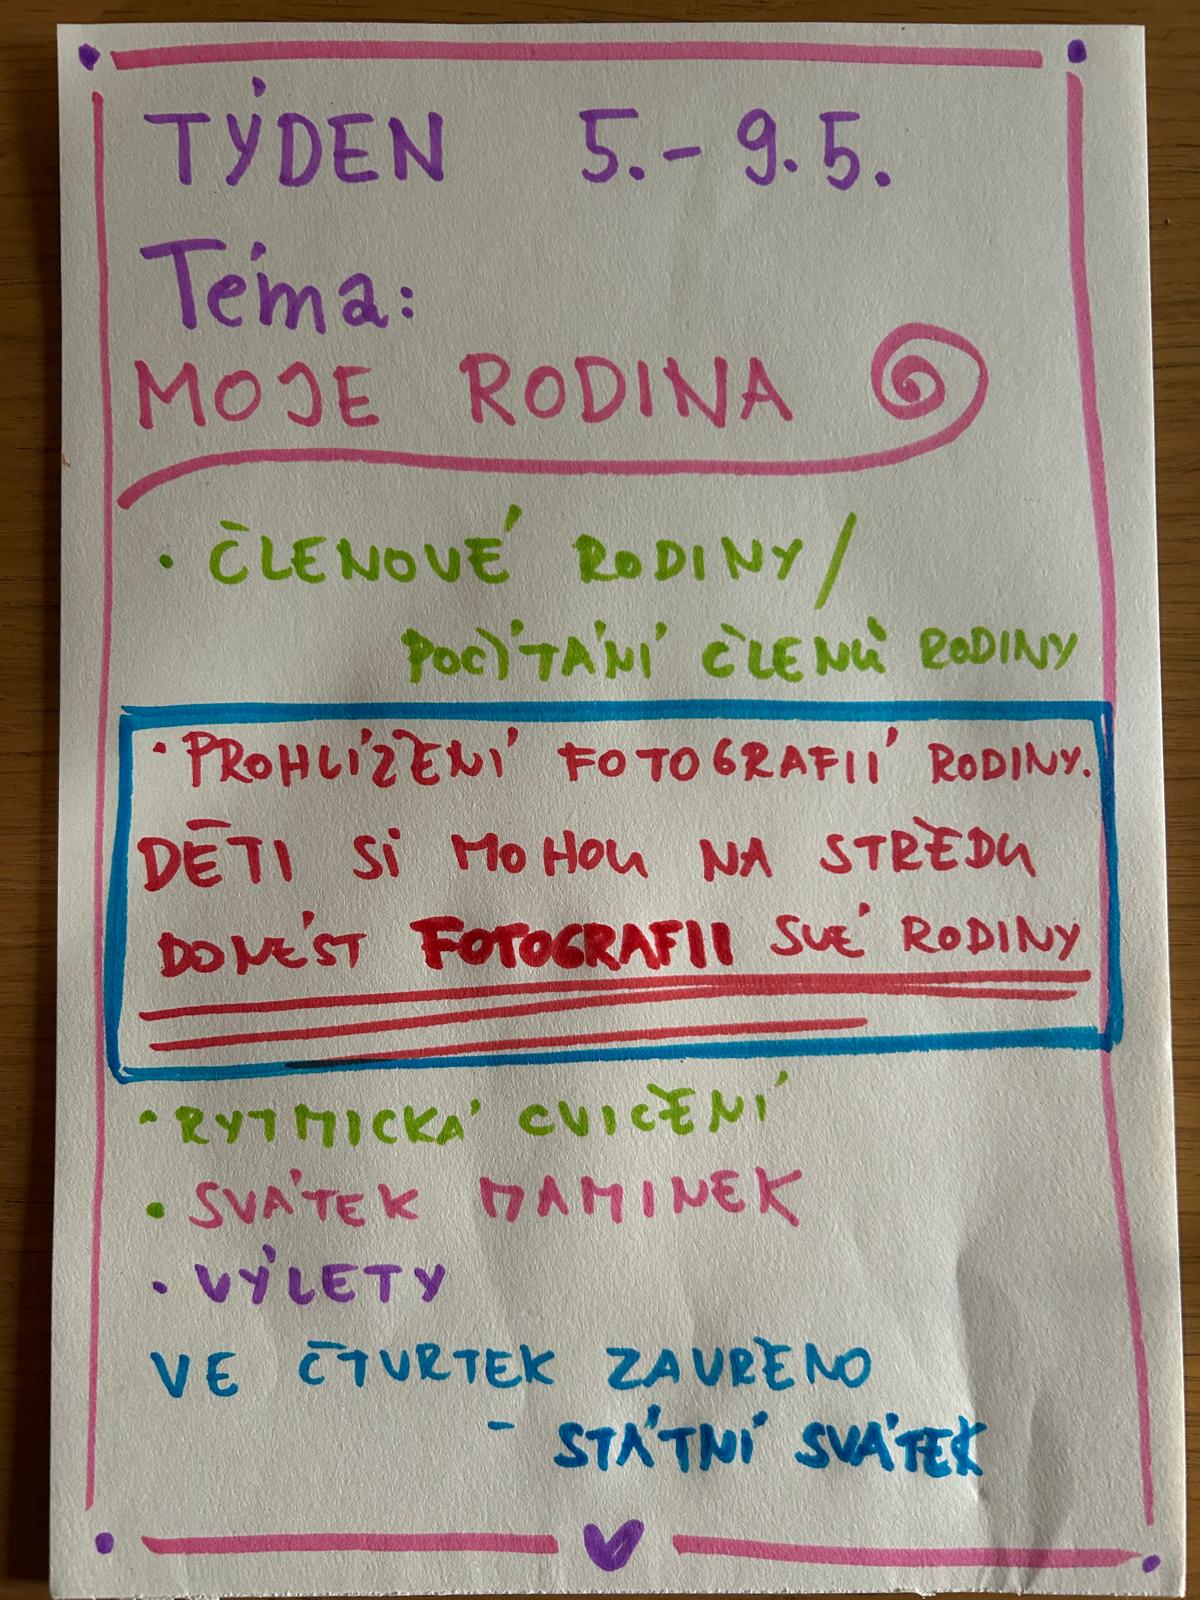 TÝDEN 5.-9.5.
Téma:
MOJE RODINA
• ČLENOVÉ RODINY/
POČÍTÁNÍ ČLENŮ RODINY
• PROHLÍŽENÍ FOTOGRAFIÍ RODINY.
DĚTI SI MOHOU NA STŘEDU
DONÉST FOTOGRAFII SVÉ RODINY
• RYTMICKÁ CVIČENÍ
• SVÁTEK MAMINEK
• VÝLETY
VE ČTVRTEK ZAVŘENO
- STÁTNÍ SVÁTEK